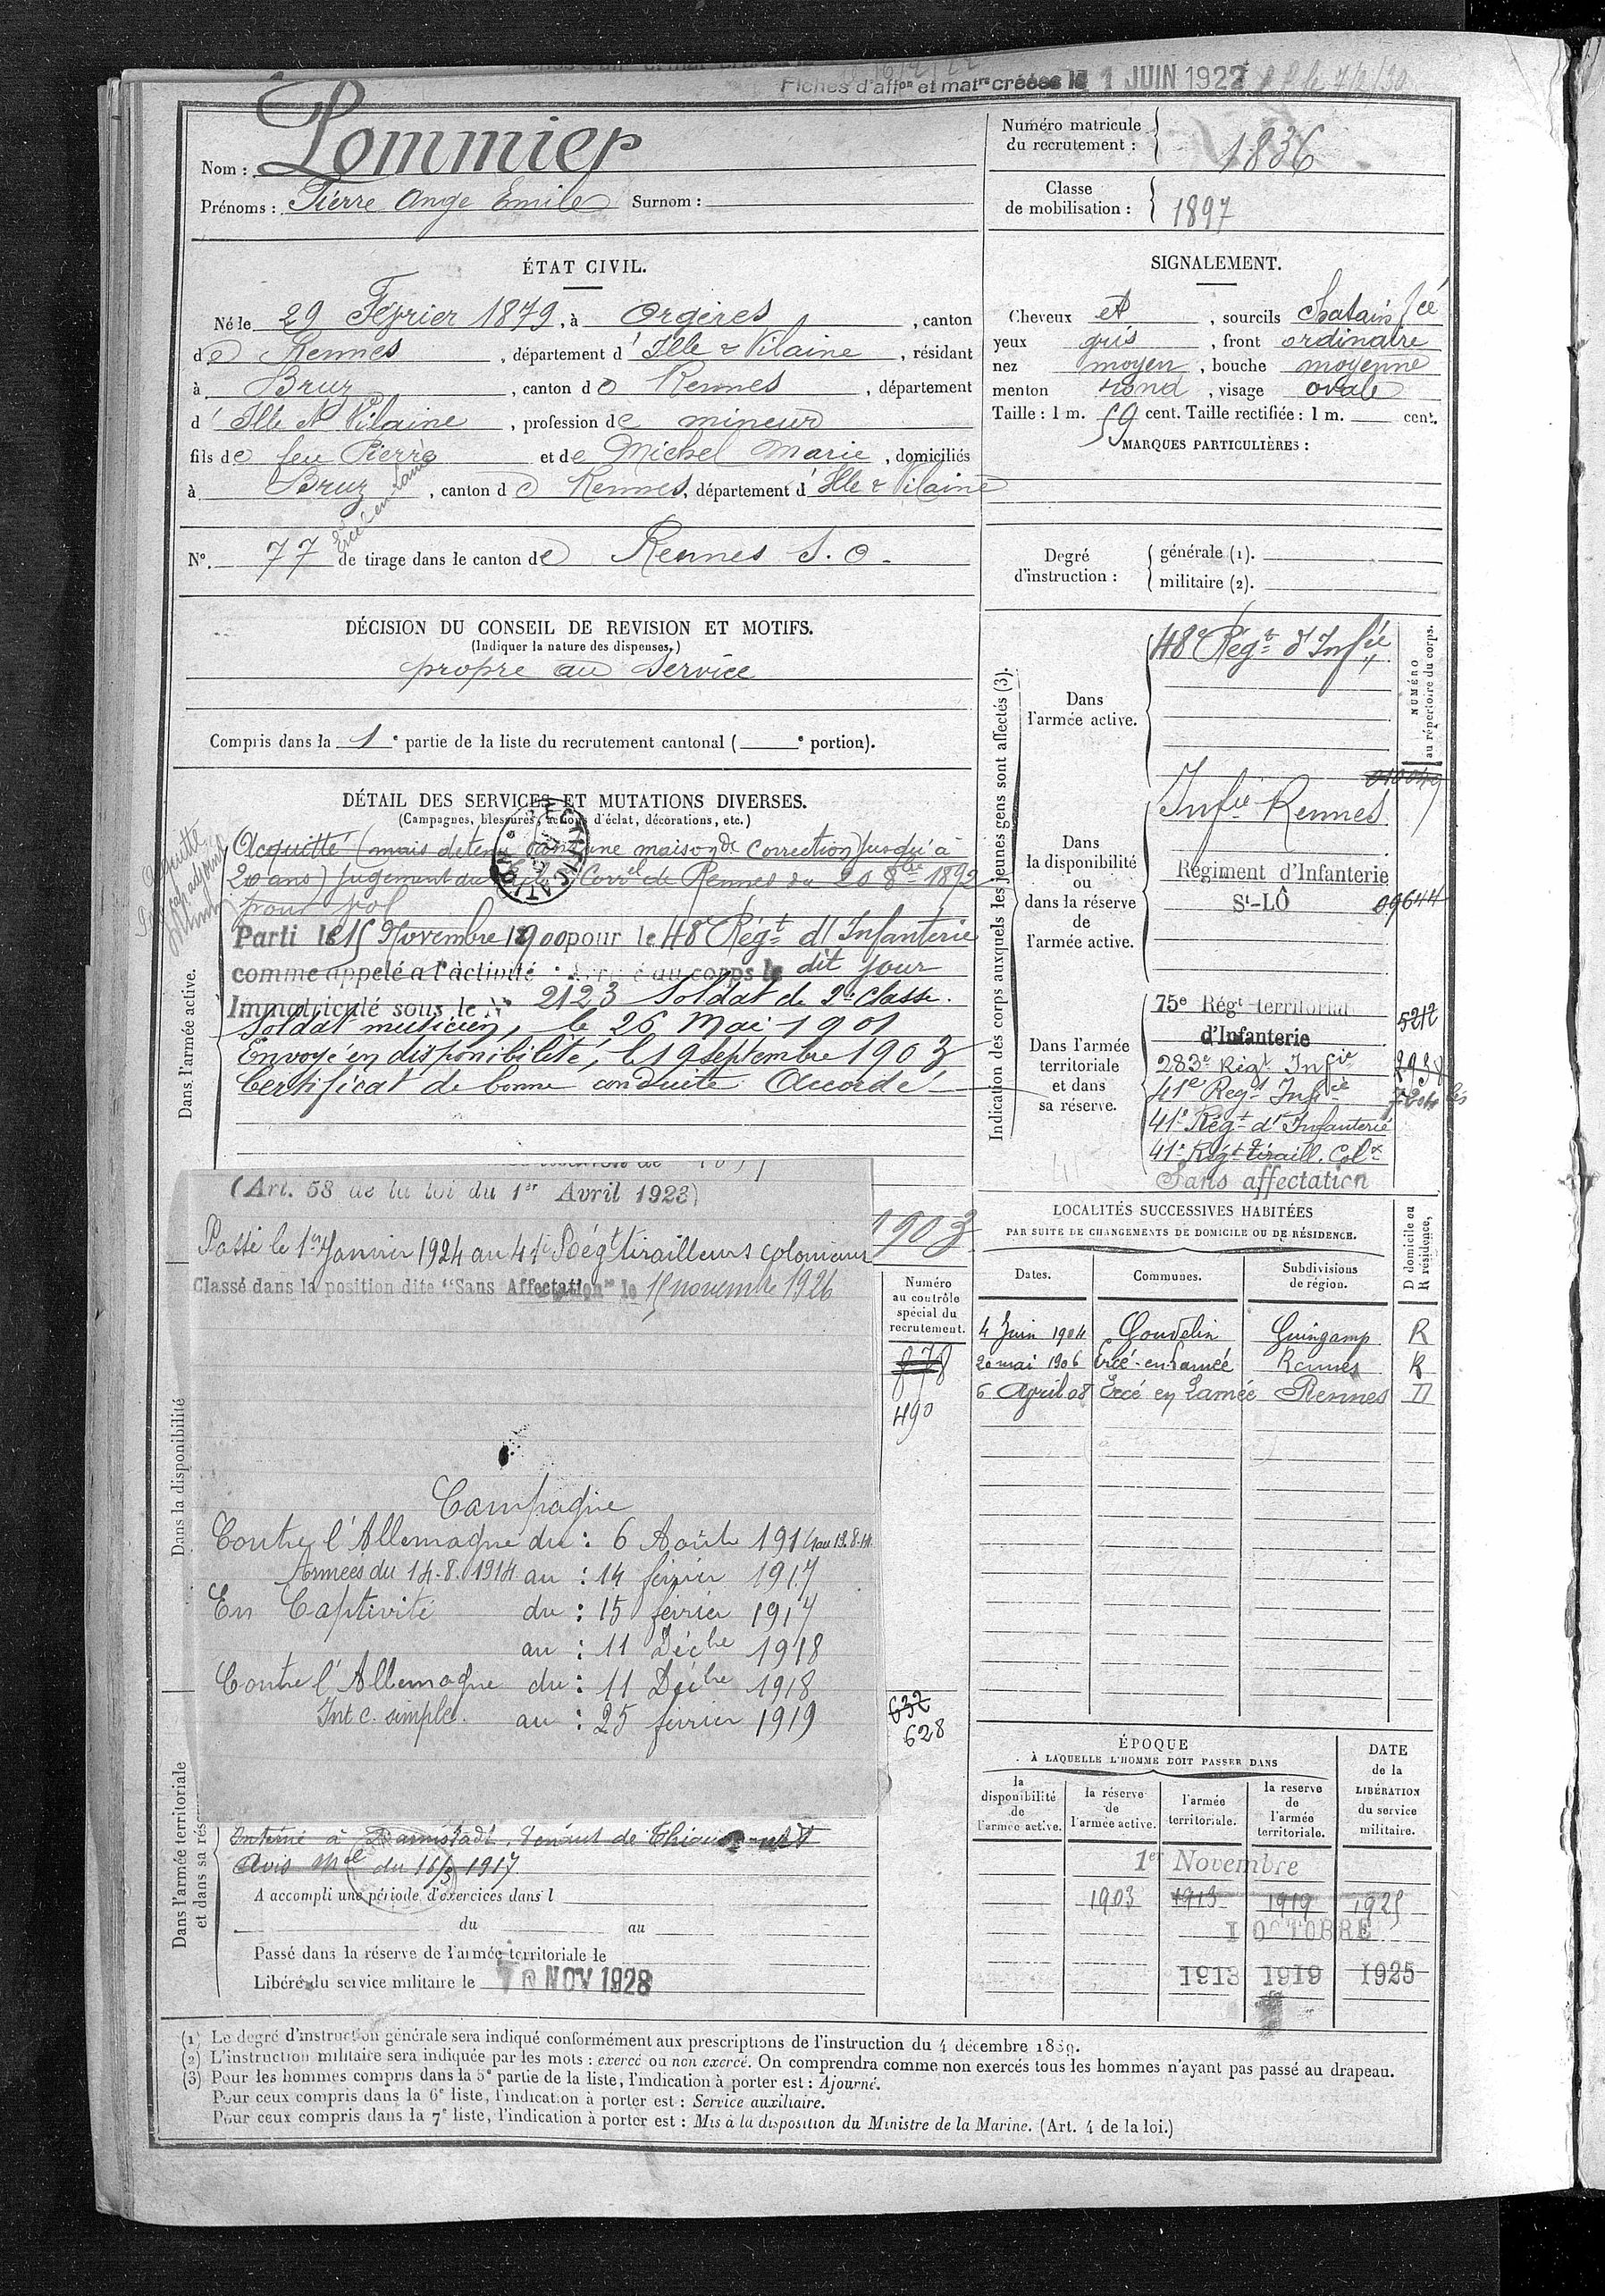 Fiches d'aff^on et mat^re créées le 1 JUIN 1922
Nom : Lommier
Prénoms : Pierre Ange Emile Surnom :
Numéro matricule du recrutement : 1836
Classe de mobilisation : 1897
ÉTAT CIVIL.
Né le 29 Février 1879, à Orgères, canton
de Rennes, département d'Ille & Vilaine, résidant
à Bruz, canton de Rennes, département
d'Ille et Vilaine, profession de mineur
fils de feu Pierre et de Michel Marie, domiciliés
à Bruz, canton de Rennes, département d'Ille & Vilaine
Ercé en Lamée
N° 77 de tirage dans le canton de Rennes S. O.
SIGNALEMENT.
Cheveux et, sourcils Chatain fcé
yeux gris, front ordinaire
nez moyen, bouche moyenne
menton rond, visage ovale
Taille : 1 m. 59 cent. Taille rectifiée : 1 m. cent.
MARQUES PARTICULIÈRES :
Degré d'instruction : générale (1).
militaire (2).
DÉCISION DU CONSEIL DE REVISION ET MOTIFS.
(Indiquer la nature des dispenses.)
propre au service
Compris dans la 1e partie de la liste du recrutement cantonal ( e portion).
DÉTAIL DES SERVICES ET MUTATIONS DIVERSES.
(Campagnes, blessures, actions d'éclat, décorations, etc.)
Dans l'armée active.
Acquitté (mais detenu dans une maison de Correction jusqu'à
20 ans) jugement du Corr^el de Rennes du 20 8^bre 1892
pour vol
Parti le 15 Novembre 1900 pour le 48e Rég^t d'Infanterie
comme appelé a l'activité. Arrivé au corps le dit jour
Immatriculé sous le N° 2123 Soldat de 2e Classe.
Soldat musicien, le 26 Mai 1901
Envoyé en disponibilité, le 19 septembre 1903
Certificat de bonne conduite Accordé
(Art. 58 de la loi du 1er Avril 1923)
1903
Passé le 1er Janvier 1924 au 41e Rég^t tirailleurs coloniaux
Classé dans la position dite "Sans Affectation" le 15 novembre 1926
Dans la disponibilité
Campagne
Contre l'Allemagne du : 6 Août 1914 au 13.8.14
Armées du 14.8.1914 au : 14 février 1917
En Captivité du : 15 février 1917
au : 11 Déc^bre 1918
Contre l'Allemagne du : 11 Déc^bre 1918
Int C. simple. au : 25 février 1919
Dans l'armée territoriale et dans sa rés
Interné à Darmstadt, venant de
Avis M^el du 16/3 1917
A accompli une période d'exercices dans l
du au
Passé dans la réserve de l'armée territoriale le
Libéré du service militaire le 10 NOV 1928
Numéro au contrôle spécial du recrutement.
878
490
632
628
Indication des corps auxquels les jeunes gens sont affectés (3).
NUMÉRO au répertoire du corps.
Dans l'armée active.
48e Rég^t d'Inf^ie
Dans la disponibilité ou dans la réserve de l'armée active.
Inf^ie Rennes
Régiment d'Infanterie
S^t-LÔ 09644
Dans l'armée territoriale et dans sa réserve.
75e Rég^t territorial 5212
d'Infanterie
283e Rég^t Inf^ie
41e Reg^t Inf^ie
41e Rég^t d'Infanterie
41e Rég^t tiraill. Col^x
Sans affectation
LOCALITÉS SUCCESSIVES HABITÉES
PAR SUITE DE CHANGEMENTS DE DOMICILE OU DE RÉSIDENCE.
Dates. Communes. Subdivisions de région. D domicile ou R résidence,
4 Juin 1904 Goudelin Guingamp R
20 mai 1906 Ercé-en-Lamée Rennes R
6 April 08 Ercé en Lamée Rennes D
ÉPOQUE
À LAQUELLE L'HOMME DOIT PASSER DANS
la disponibilité de l'armée active. la réserve de l'armée active. l'armée territoriale. la reserve de l'armée territoriale. DATE de la LIBÉRATION du service militaire.
1er Novembre
1903 1913 1919 1925
1 OCTOBRE
1913 1919 1925
(1) Le degré d'instruction générale sera indiqué conformément aux prescriptions de l'instruction du 4 décembre 1889.
(2) L'instruction militaire sera indiquée par les mots : exercé ou non exercé. On comprendra comme non exercés tous les hommes n'ayant pas passé au drapeau.
(3) Pour les hommes compris dans la 5e partie de la liste, l'indication à porter est : Ajourné.
Pour ceux compris dans la 6e liste, l'indication à porter est : Service auxiliaire.
Pour ceux compris dans la 7e liste, l'indication à porter est : Mis à la disposition du Ministre de la Marine. (Art. 4 de la loi.)